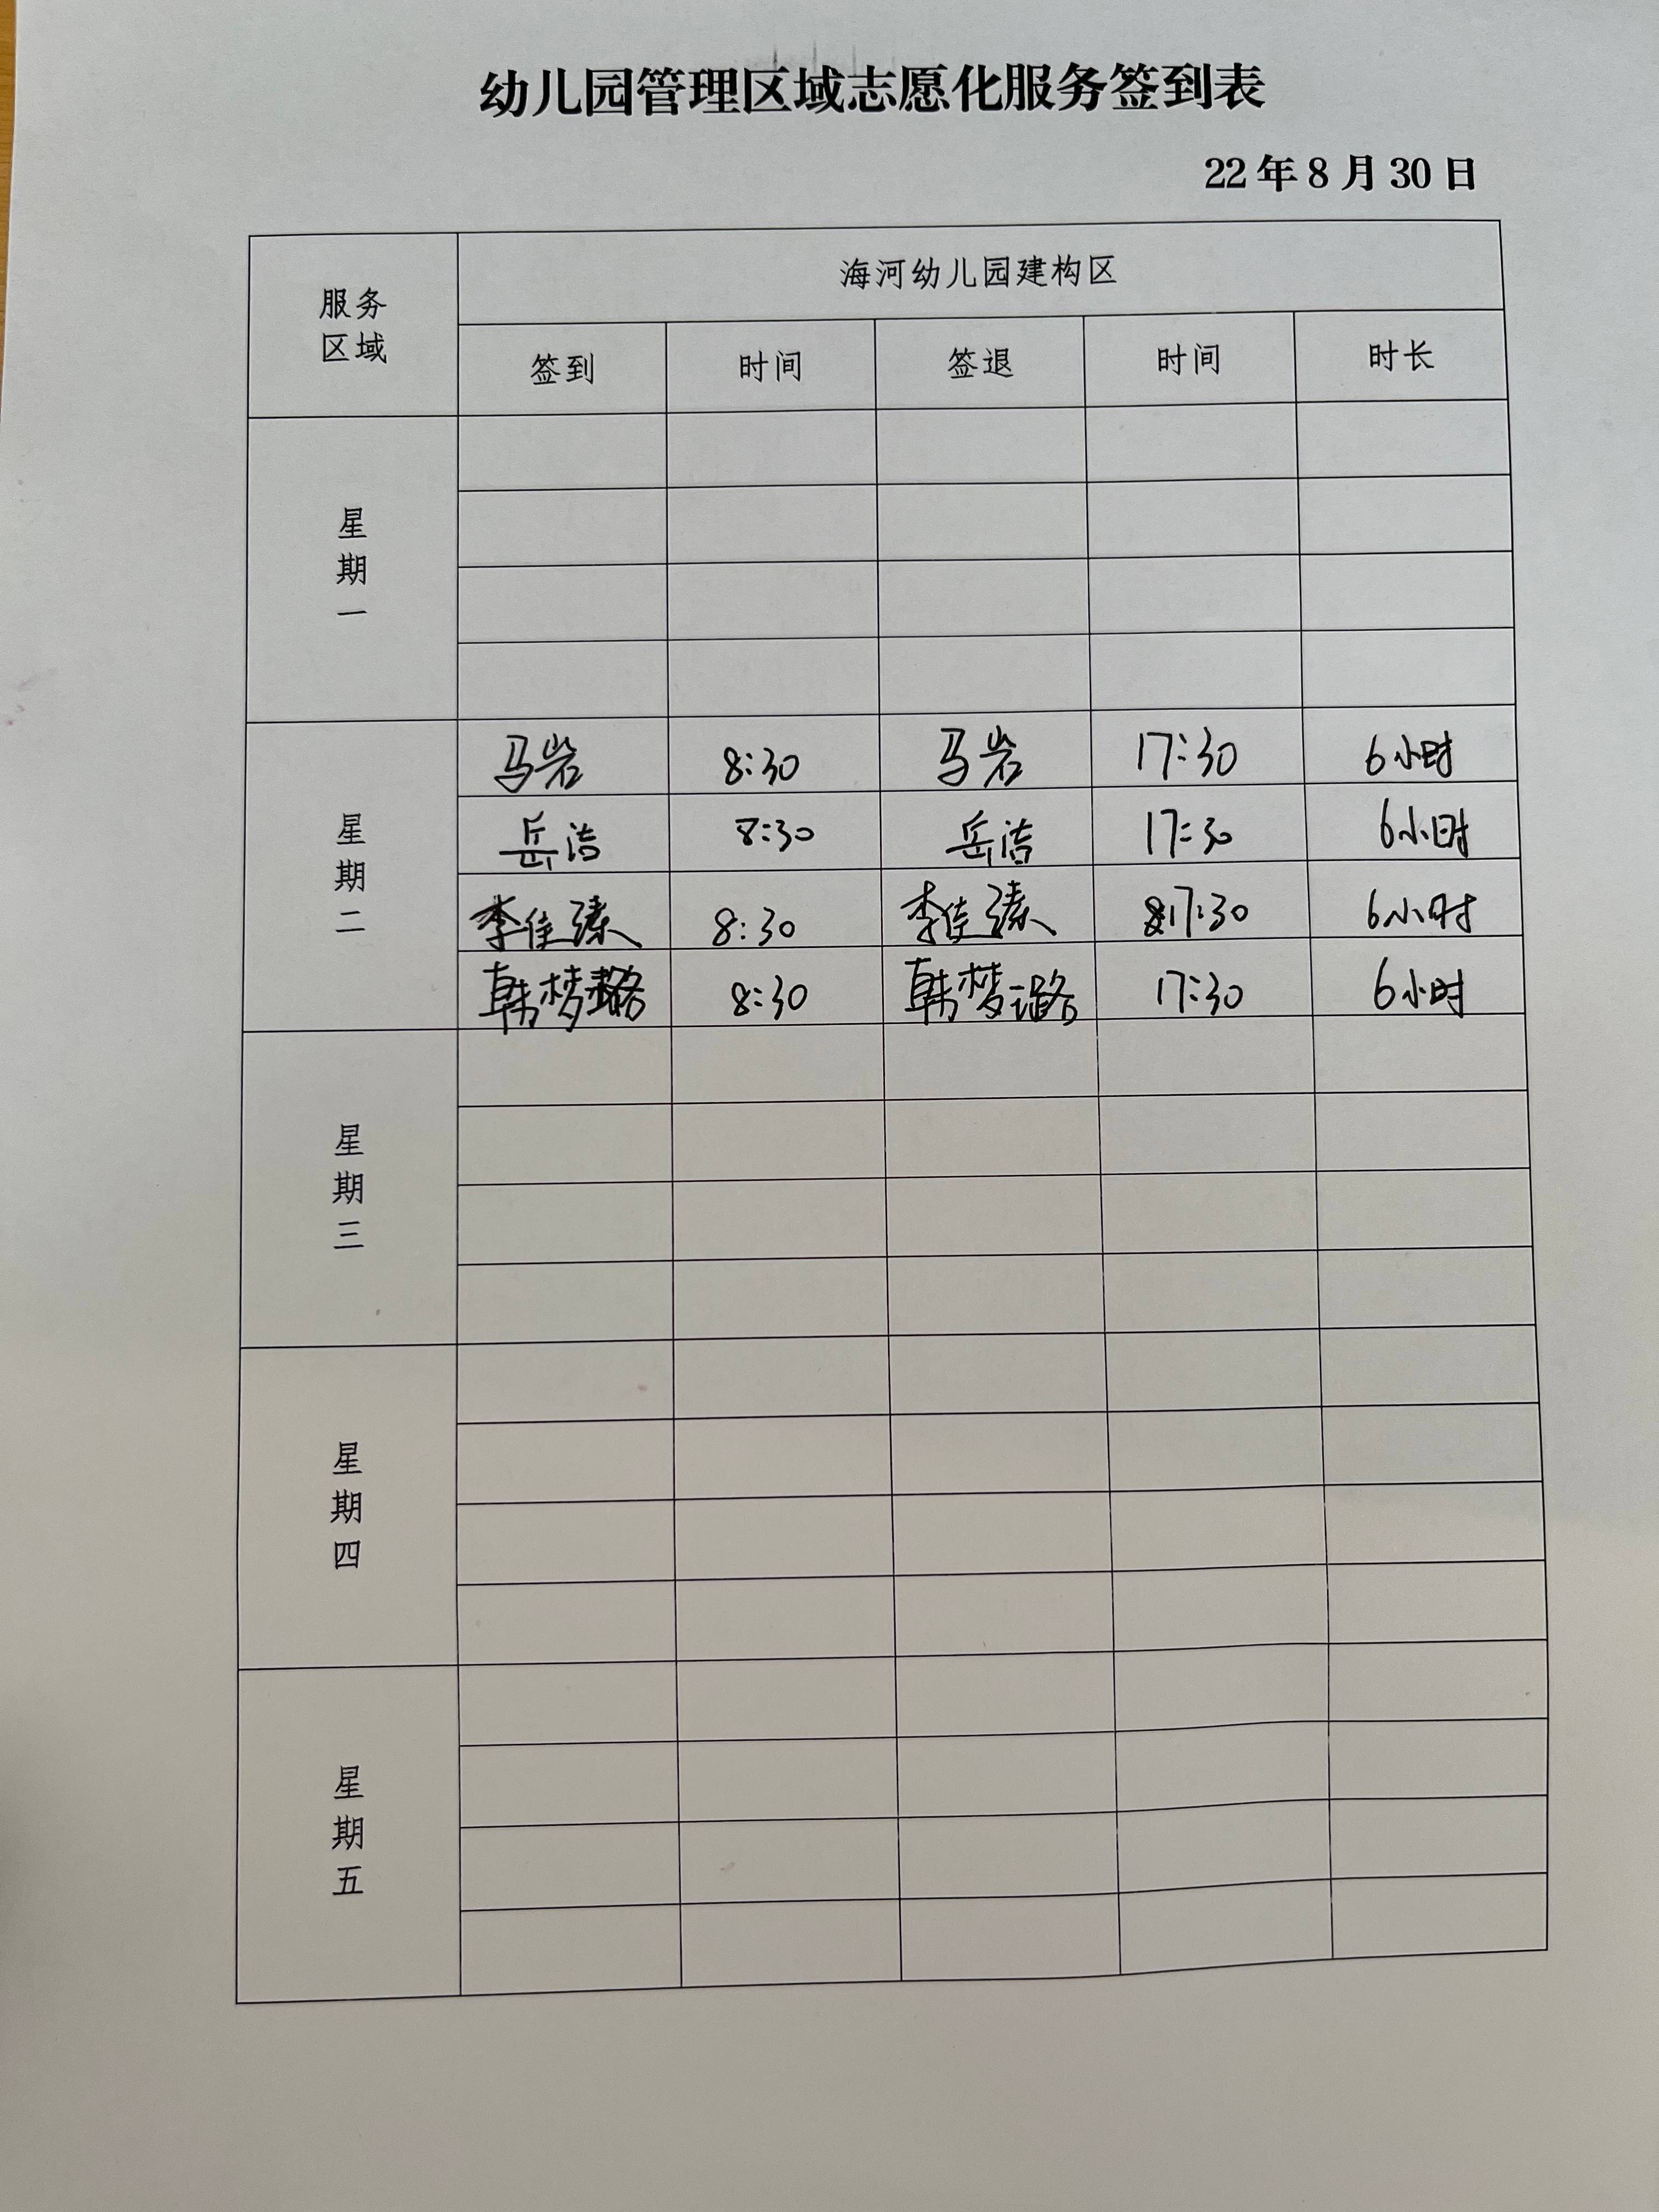 幼儿园管理区域志愿化服务签到表
22年8月30日
服务
区域
海河幼儿园建构区
签到 时间 签退 时间 时长
星
期
一
星
期
二
马岩 8:30 马岩 17:30 6小时
岳洁 8:30 岳洁 17:30 6小时
李佳臻 8:30 李佳臻 17:30 6小时
韩梦璐 8:30 韩梦璐 17:30 6小时
星
期
三
星
期
四
星
期
五